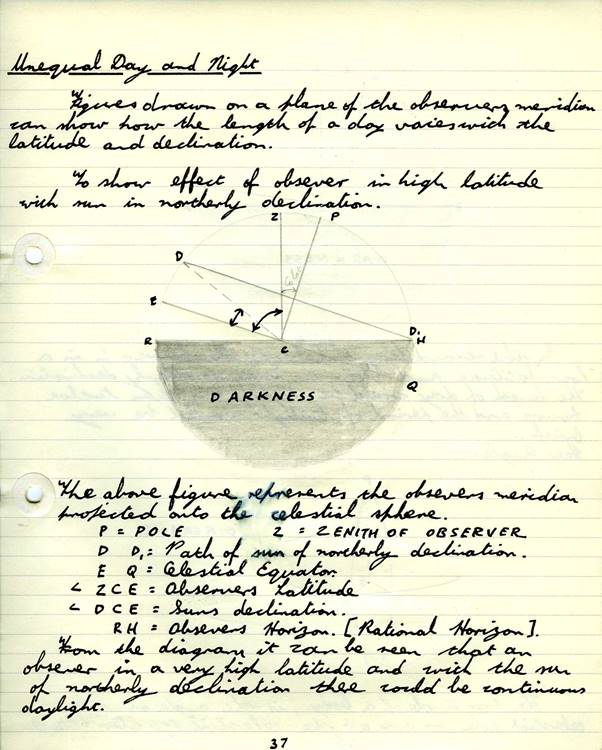 Unequal Day and Night
Figures drawn on a plane of the observers meridian
can show how the length of a day varies with the
latitude and declination.
To show effect of obsever in high latitude
with sun in northerly declination.
Z P
D
E
R C D₁ H
Q
DARKNESS
The above figure represents the observers meridian
projected onto the celestial sphere.
P = POLE Z = ZENITH OF OBSERVER
D D₁ = Path of sun of northerly declination.
E Q = Celestial Equator.
< ZCE = Observers Latitude
< DCE = Suns declination.
RH = Observers Horizon. [Rational Horizon].
From the diagram it can be seen that an
observer in a very high latitude and with the sun
of northerly declination thee could be continuous
daylight.
37